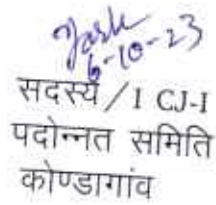 6-10-23
सदस्य / I CJ-I
पदोन्नत समिति
कोण्डागांव